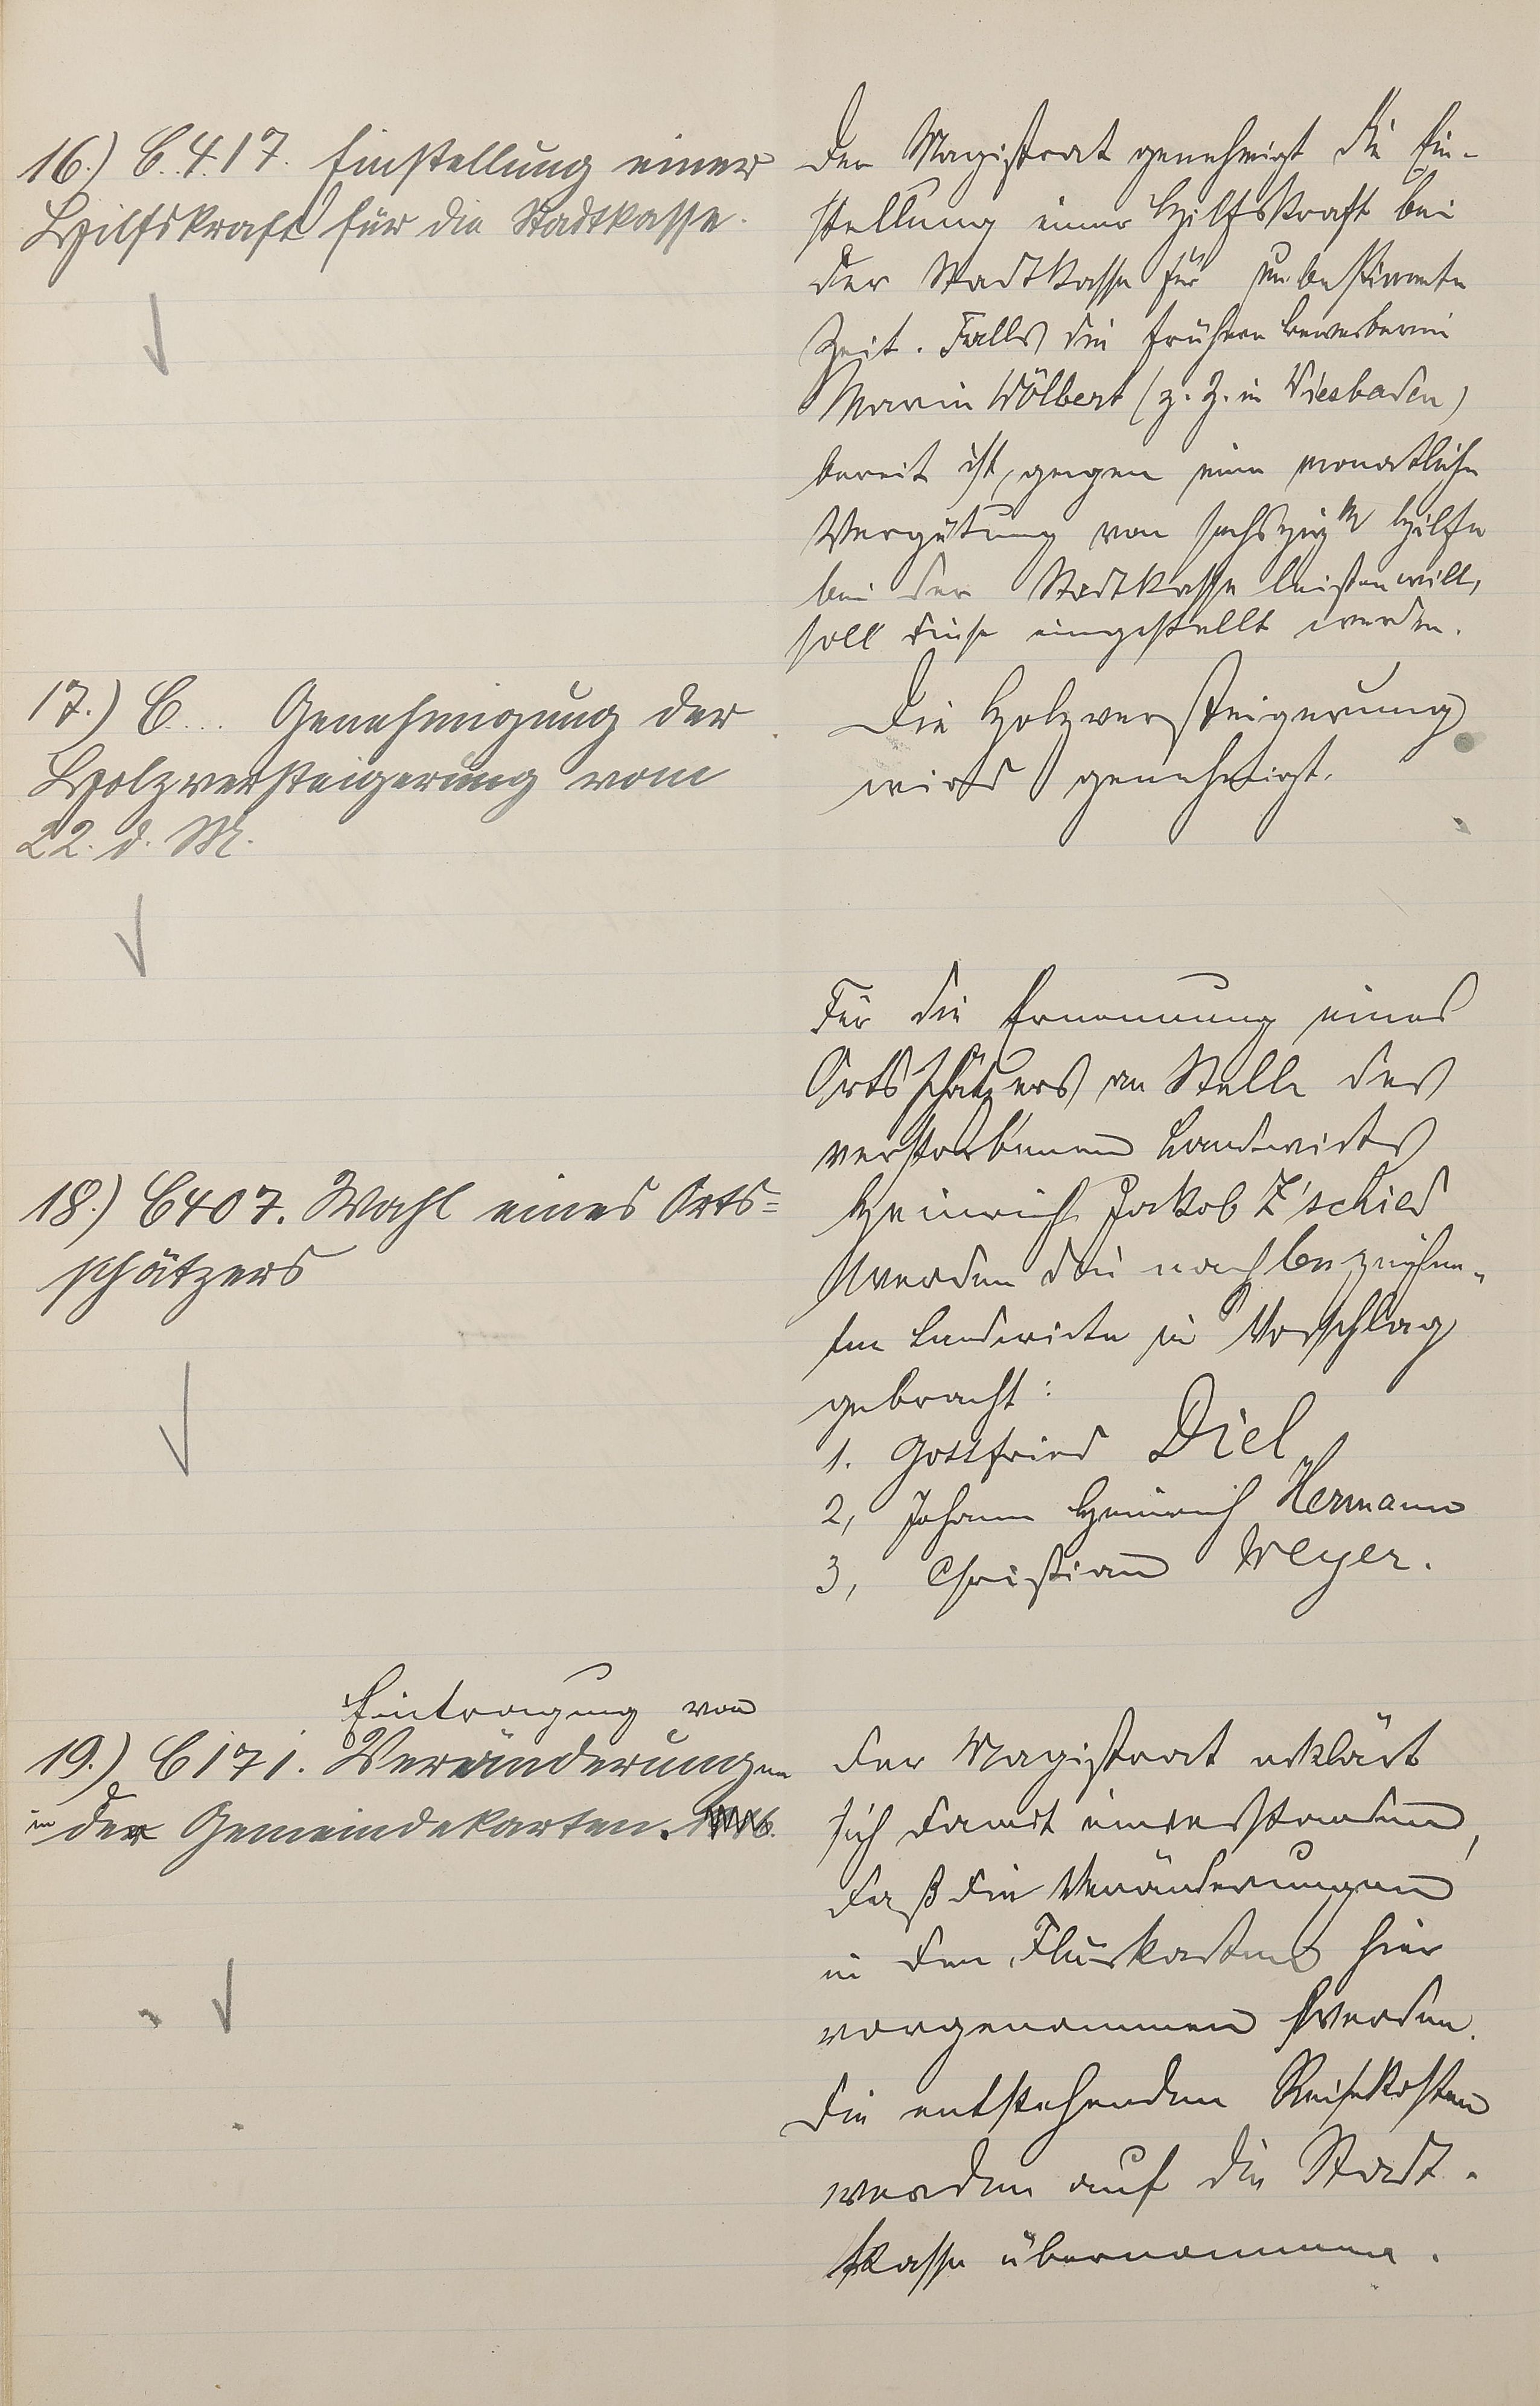 16.) C. 417. Einstellung einer
Hilfskraft für die Stadtkasse.
Der Magistrat genehmigt die Ein-
stellung einer Hilfskraft bei
der Stadtkasse für unbestimmte
Zeit. Falls die frühere Bewerberin
Marie Wölbert (z. Z. in Wiesbaden)
bereit ist, gegen eine monatliche
Vergütung von sechszig M Hilfe
bei der Stadtkasse leisten will,
soll diese eingestellt werden.
17.) C... Genehmigung der
Holzversteigerung vom
22. d. M.
Die Holzversteigerung
wird genehmigt.
18.) C407. Wahl eines Orts=
schätzers
Für die Ernennung eines
Ortsschätzers an Stelle des
verstorbenen Landwirts
Heinrich Jakob Z'schied
werden die nachbezeichne-
ten Landwirte in Vorschlag
gebracht:
1. Gottfried Diel
2, Johann Heinrich Hermann
3, Christian Weyer.
Eintragung von
19.) C171. Veränderungen
in der Gemeindekarten.
Der Magistrat erklärt
sich damit einverstanden,
daß die Veränderungen
in den Flurkarten hier
vorgenommen werden.
Die entstehenden Reisekosten
werden auf die Stadt-
kasse übernommen.